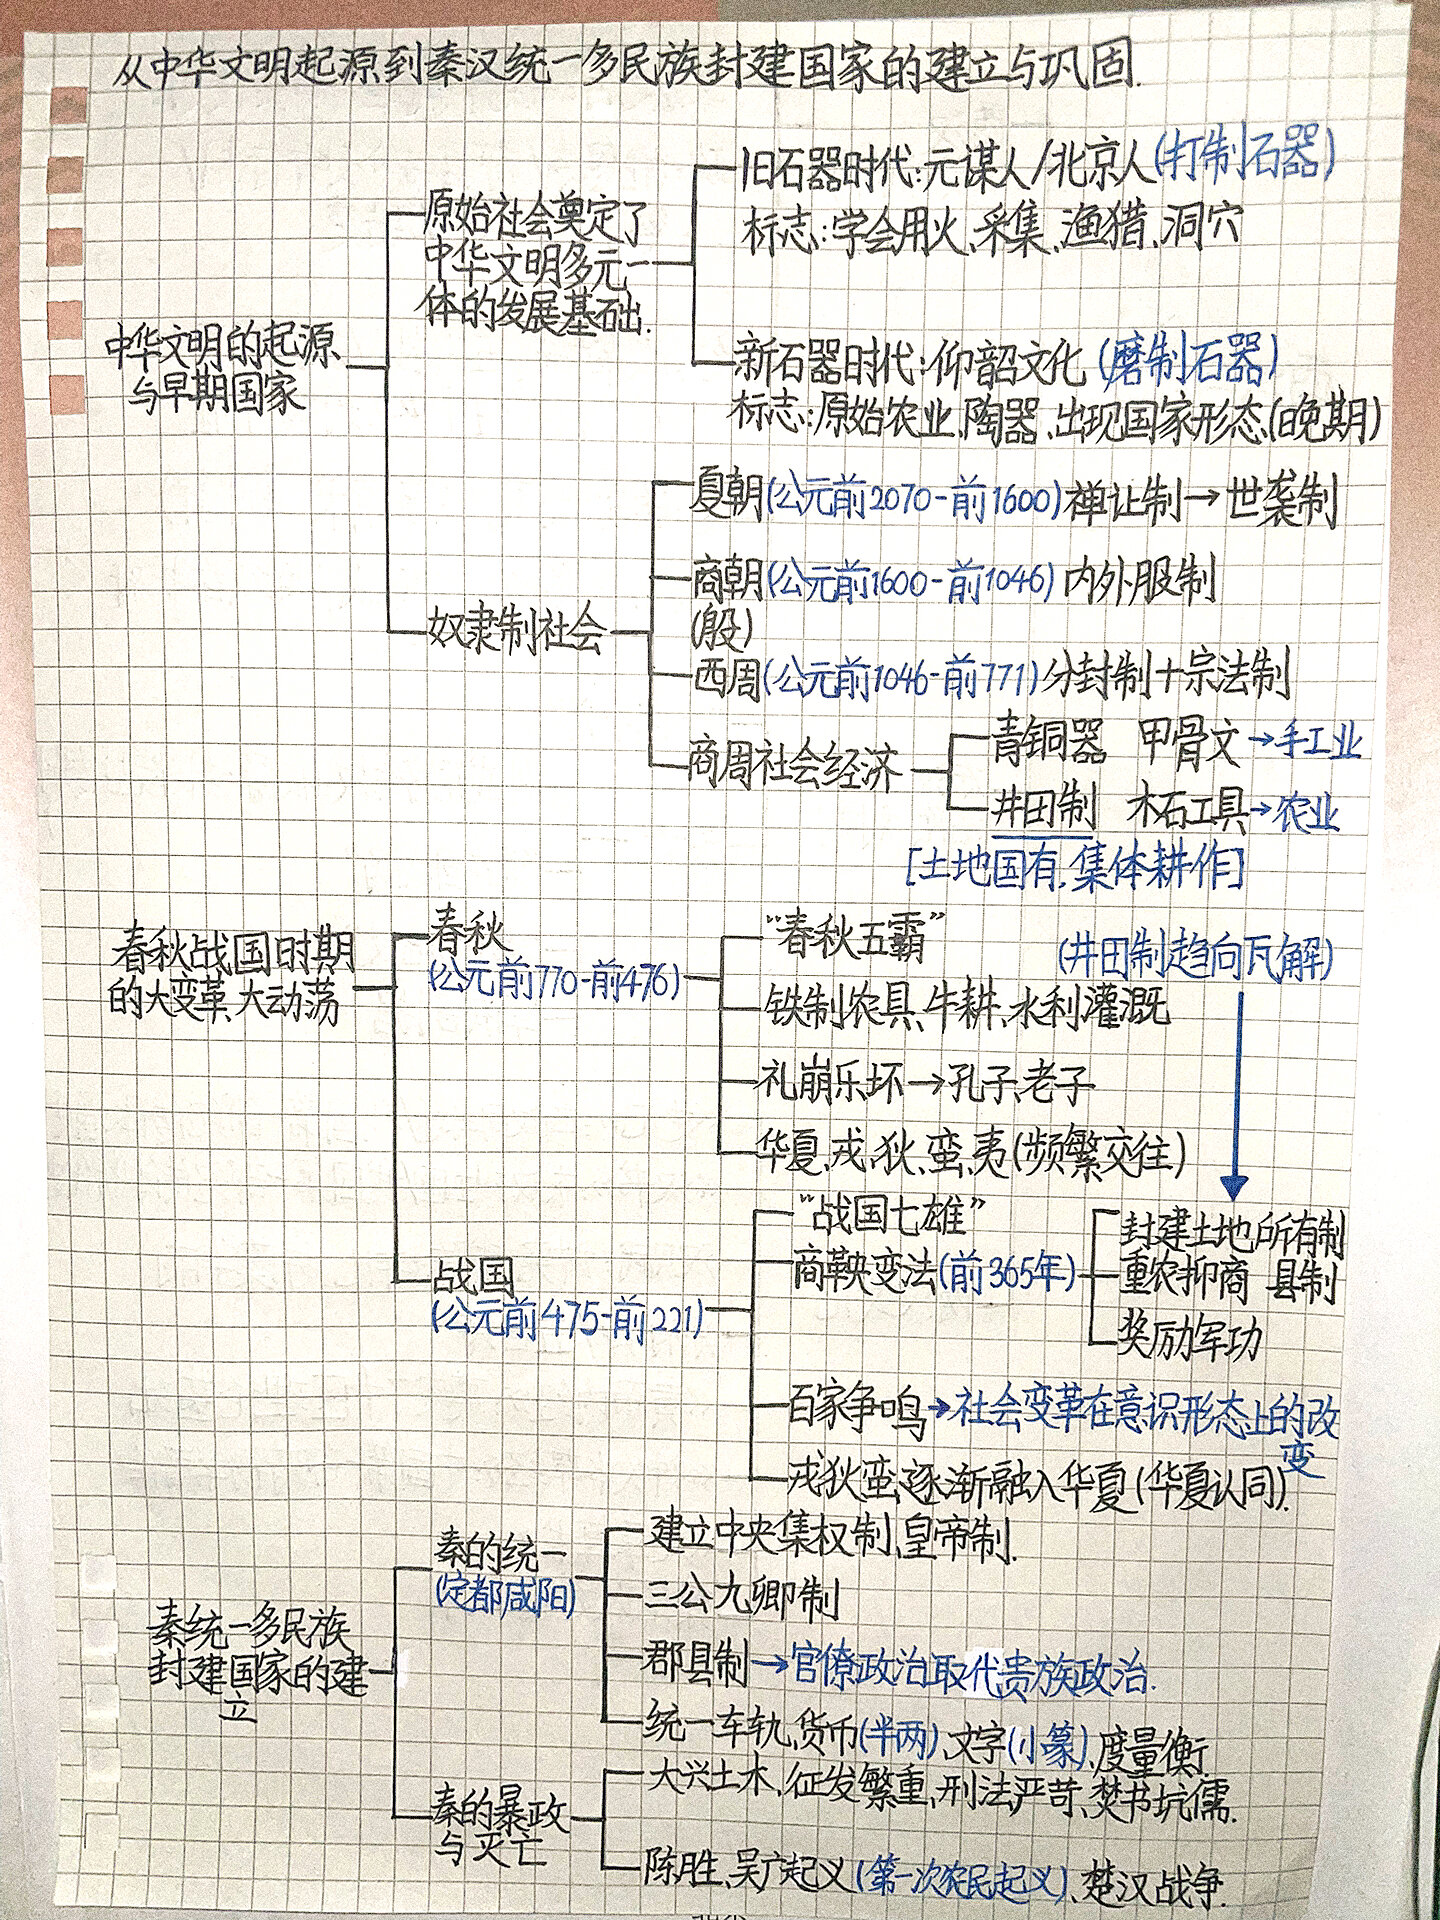 从中华文明起源到秦汉统一多民族封建国家的建立与巩固.
中华文明的起源
与早期国家
原始社会奠定了
中华文明多元一
体的发展基础.
旧石器时代:元谋人/北京人(打制石器)
标志:学会用火、采集、渔猎、洞穴
新石器时代:仰韶文化(磨制石器)
标志:原始农业、陶器、出现国家形态(晚期)
奴隶制社会
夏朝(公元前2070-前1600)禅让制→世袭制
商朝(公元前1600-前1046)内外服制
(殷)
西周(公元前1046-前771)分封制+宗法制
商周社会经济
青铜器 甲骨文→手工业
井田制 木石工具→农业
[土地国有.集体耕作]
春秋战国时期
的大变革、大动荡
春秋
(公元前770-前476)
“春秋五霸”
(井田制趋向瓦解)
铁制农具、牛耕、水利灌溉
礼崩乐坏→孔子、老子
华夏、戎、狄、蛮、夷(频繁交往)
战国
(公元前475-前221)
“战国七雄”
商鞅变法(前365年)
封建土地所有制
重农抑商 县制
奖励军功
百家争鸣→社会变革在意识形态上的改
变
戎狄蛮逐渐融入华夏(华夏认同).
秦统一多民族
封建国家的建
立
秦的统一
(定都咸阳)
建立中央集权制、皇帝制.
三公九卿制
郡县制→官僚政治取代贵族政治.
统一车轨、货币(半两)、文字(小篆)、度量衡.
秦的暴政
与灭亡
大兴土木、征发繁重、刑法严苛、焚书坑儒.
陈胜、吴广起义(第一次农民起义)、楚汉战争.